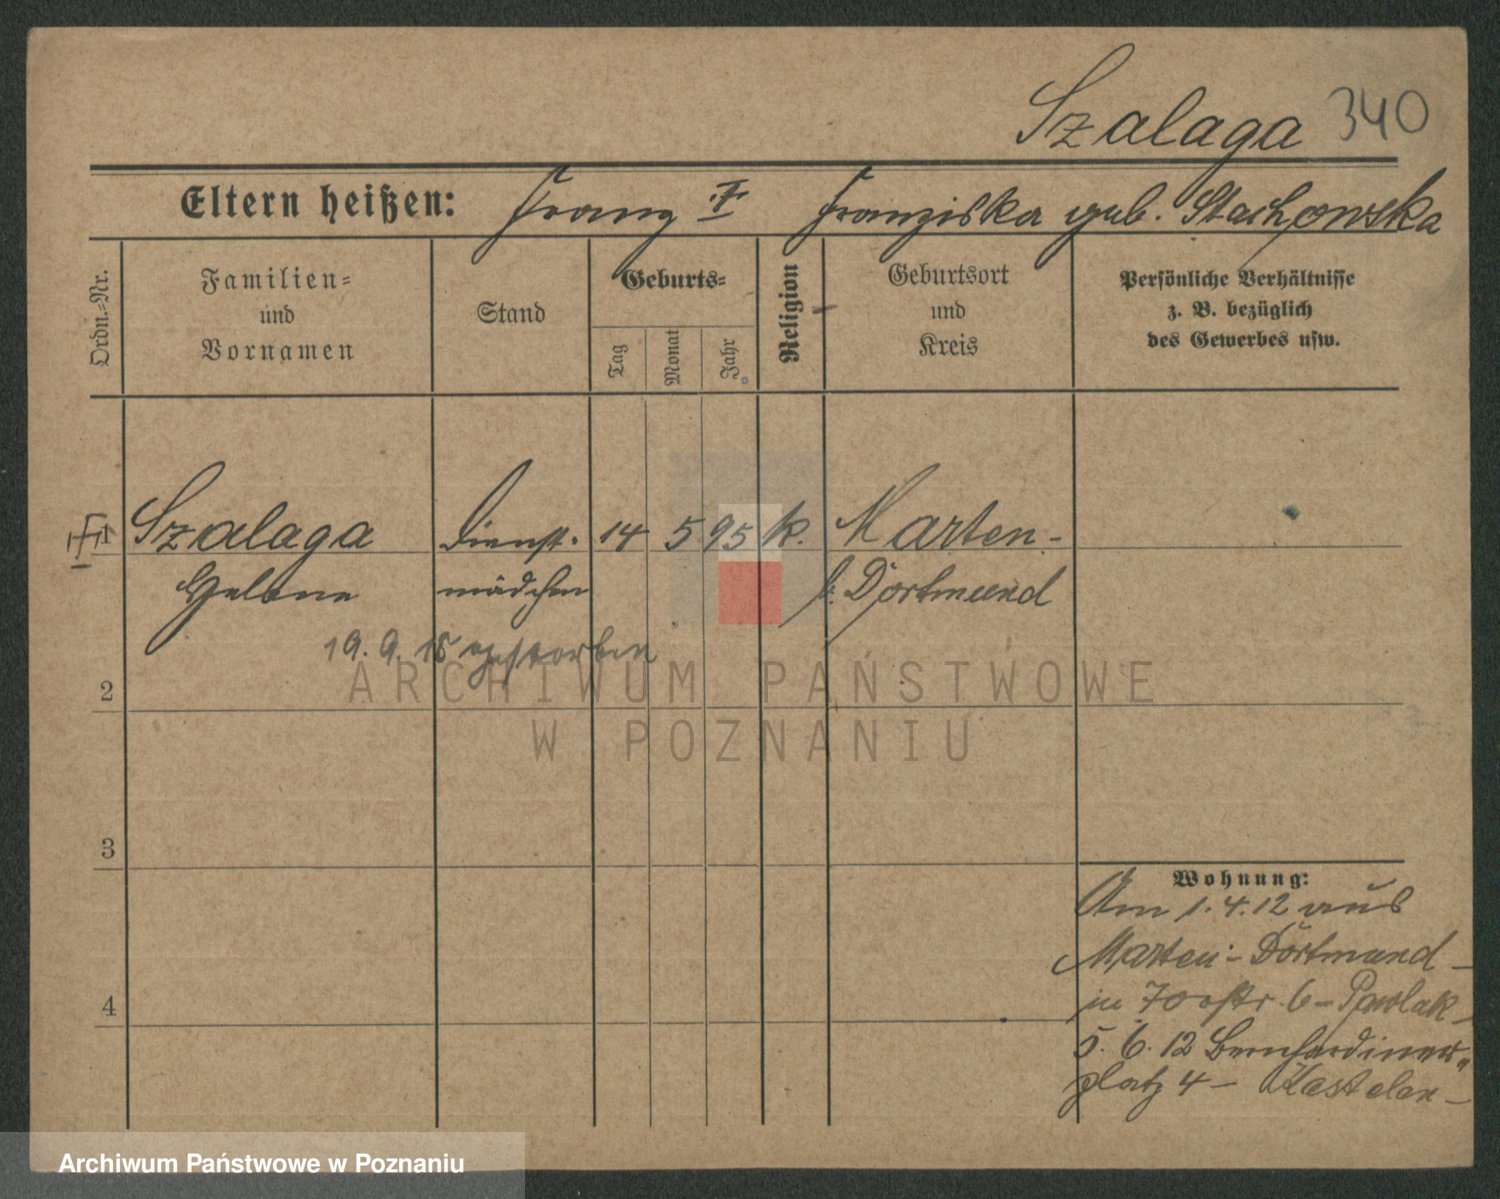 Szalaga 340
Eltern heißen: Franz † Franziska geb. Stachowska
Ordn.-Nr.
Familien-
und
Vornamen
Stand
Geburts-
Tag
Monat
Jahr
Religion
Geburtsort
und
Kreis
Persönliche Verhältnisse
z. B. bezüglich
des Gewerbes usw.
1 Szalaga Dienst- 14 5 95 k. Marten-
Helene mädchen b. Dortmund
19. 9. 18 gestorben
2
3
4
Wohnung:
Am 1.4.12 aus
Marten-Dortmund
in 6 - Pawlak
5.6.12 Bernhardiner-
platz 4 -
ARCHIWUM PAŃSTWOWE
W POZNANIU
Archiwum Państwowe w Poznaniu